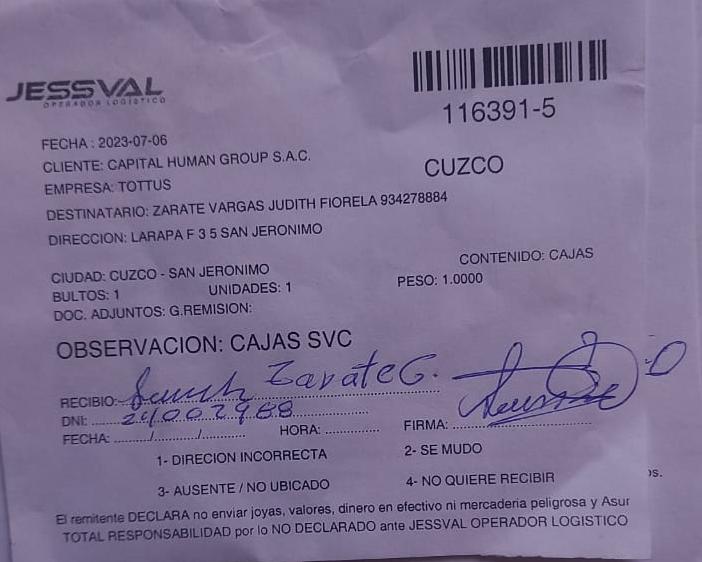 JESSVAL
OPERADOR LOGISTICO
116391-5
FECHA : 2023-07-06
CLIENTE: CAPITAL HUMAN GROUP S.A.C.
CUZCO
EMPRESA: TOTTUS
DESTINATARIO: ZARATE VARGAS JUDITH FIORELA 934278884
DIRECCION: LARAPA F 3 5 SAN JERONIMO
CIUDAD: CUZCO - SAN JERONIMO
CONTENIDO: CAJAS
BULTOS: 1 UNIDADES: 1 PESO: 1.0000
DOC. ADJUNTOS: G.REMISION:
OBSERVACION: CAJAS SVC
RECIBIO: Zarate G.
DNI: 24002988
FECHA: ......./......../........... HORA: .............. FIRMA: ....................................
1- DIRECION INCORRECTA 2- SE MUDO
3- AUSENTE / NO UBICADO 4- NO QUIERE RECIBIR
El remitente DECLARA no enviar joyas, valores, dinero en efectivo ni mercaderia peligrosa y Asur
TOTAL RESPONSABILIDAD por lo NO DECLARADO ante JESSVAL OPERADOR LOGISTICO